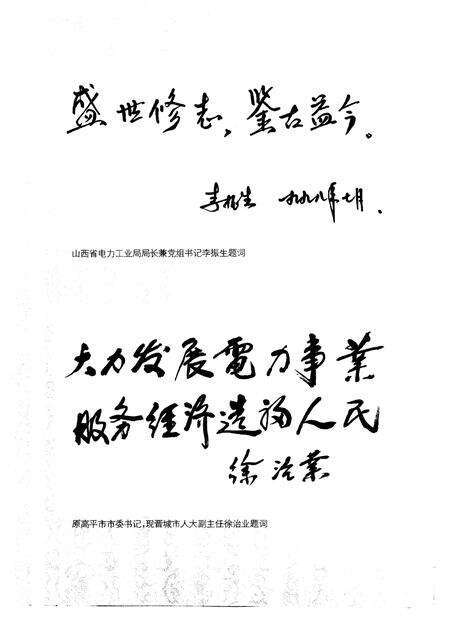 盛世修志，鉴古益今。
李振生 一九九八年七月.
山西省电力工业局局长兼党组书记李振生题词
大力发展電力事業
服务经济造福人民
徐治業
原高平市市委书记，现晋城市人大副主任徐治业题词